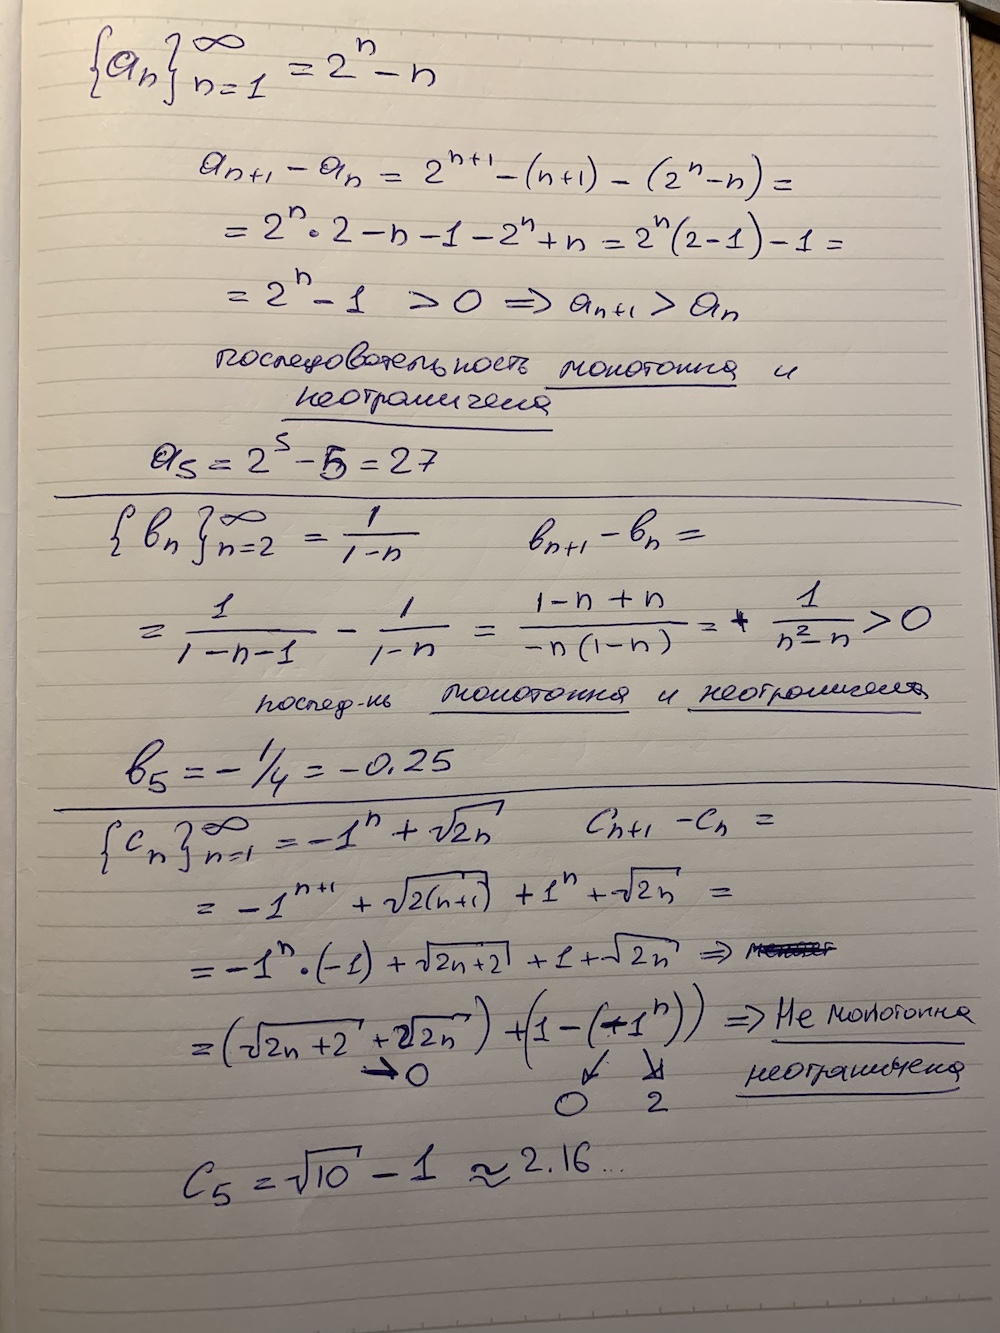 {aₙ}ₙ₌₁^∞ = 2ⁿ - n
aₙ₊₁ - aₙ = 2ⁿ⁺¹ - (n+1) - (2ⁿ - n) =
= 2ⁿ · 2 - n - 1 - 2ⁿ + n = 2ⁿ(2-1) - 1 =
= 2ⁿ - 1 > 0 => aₙ₊₁ > aₙ
последовательность монотонна и
неограничена
a₅ = 2⁵ - 5 = 27
{bₙ}ₙ₌₂^∞ = 1/(1-n) bₙ₊₁ - bₙ =
= 1/(1-n-1) - 1/(1-n) = (1-n+n)/(-n(1-n)) = + 1/(n²-n) > 0
послед-нь монотонна и неограничена
b₅ = -1/4 = -0.25
{cₙ}ₙ₌₁^∞ = -1ⁿ + √(2n) cₙ₊₁ - cₙ =
= -1ⁿ⁺¹ + √(2(n+1)) + 1ⁿ + √(2n) =
= -1ⁿ · (-1) + √(2n+2) + 1 + √(2n) =>
= (√(2n+2) + √(2n)) + (1 - (-1ⁿ)) => Не монотонна
→ 0 ↙ ↘ неограничена
0 2
c₅ = √10 - 1 ≈ 2.16...